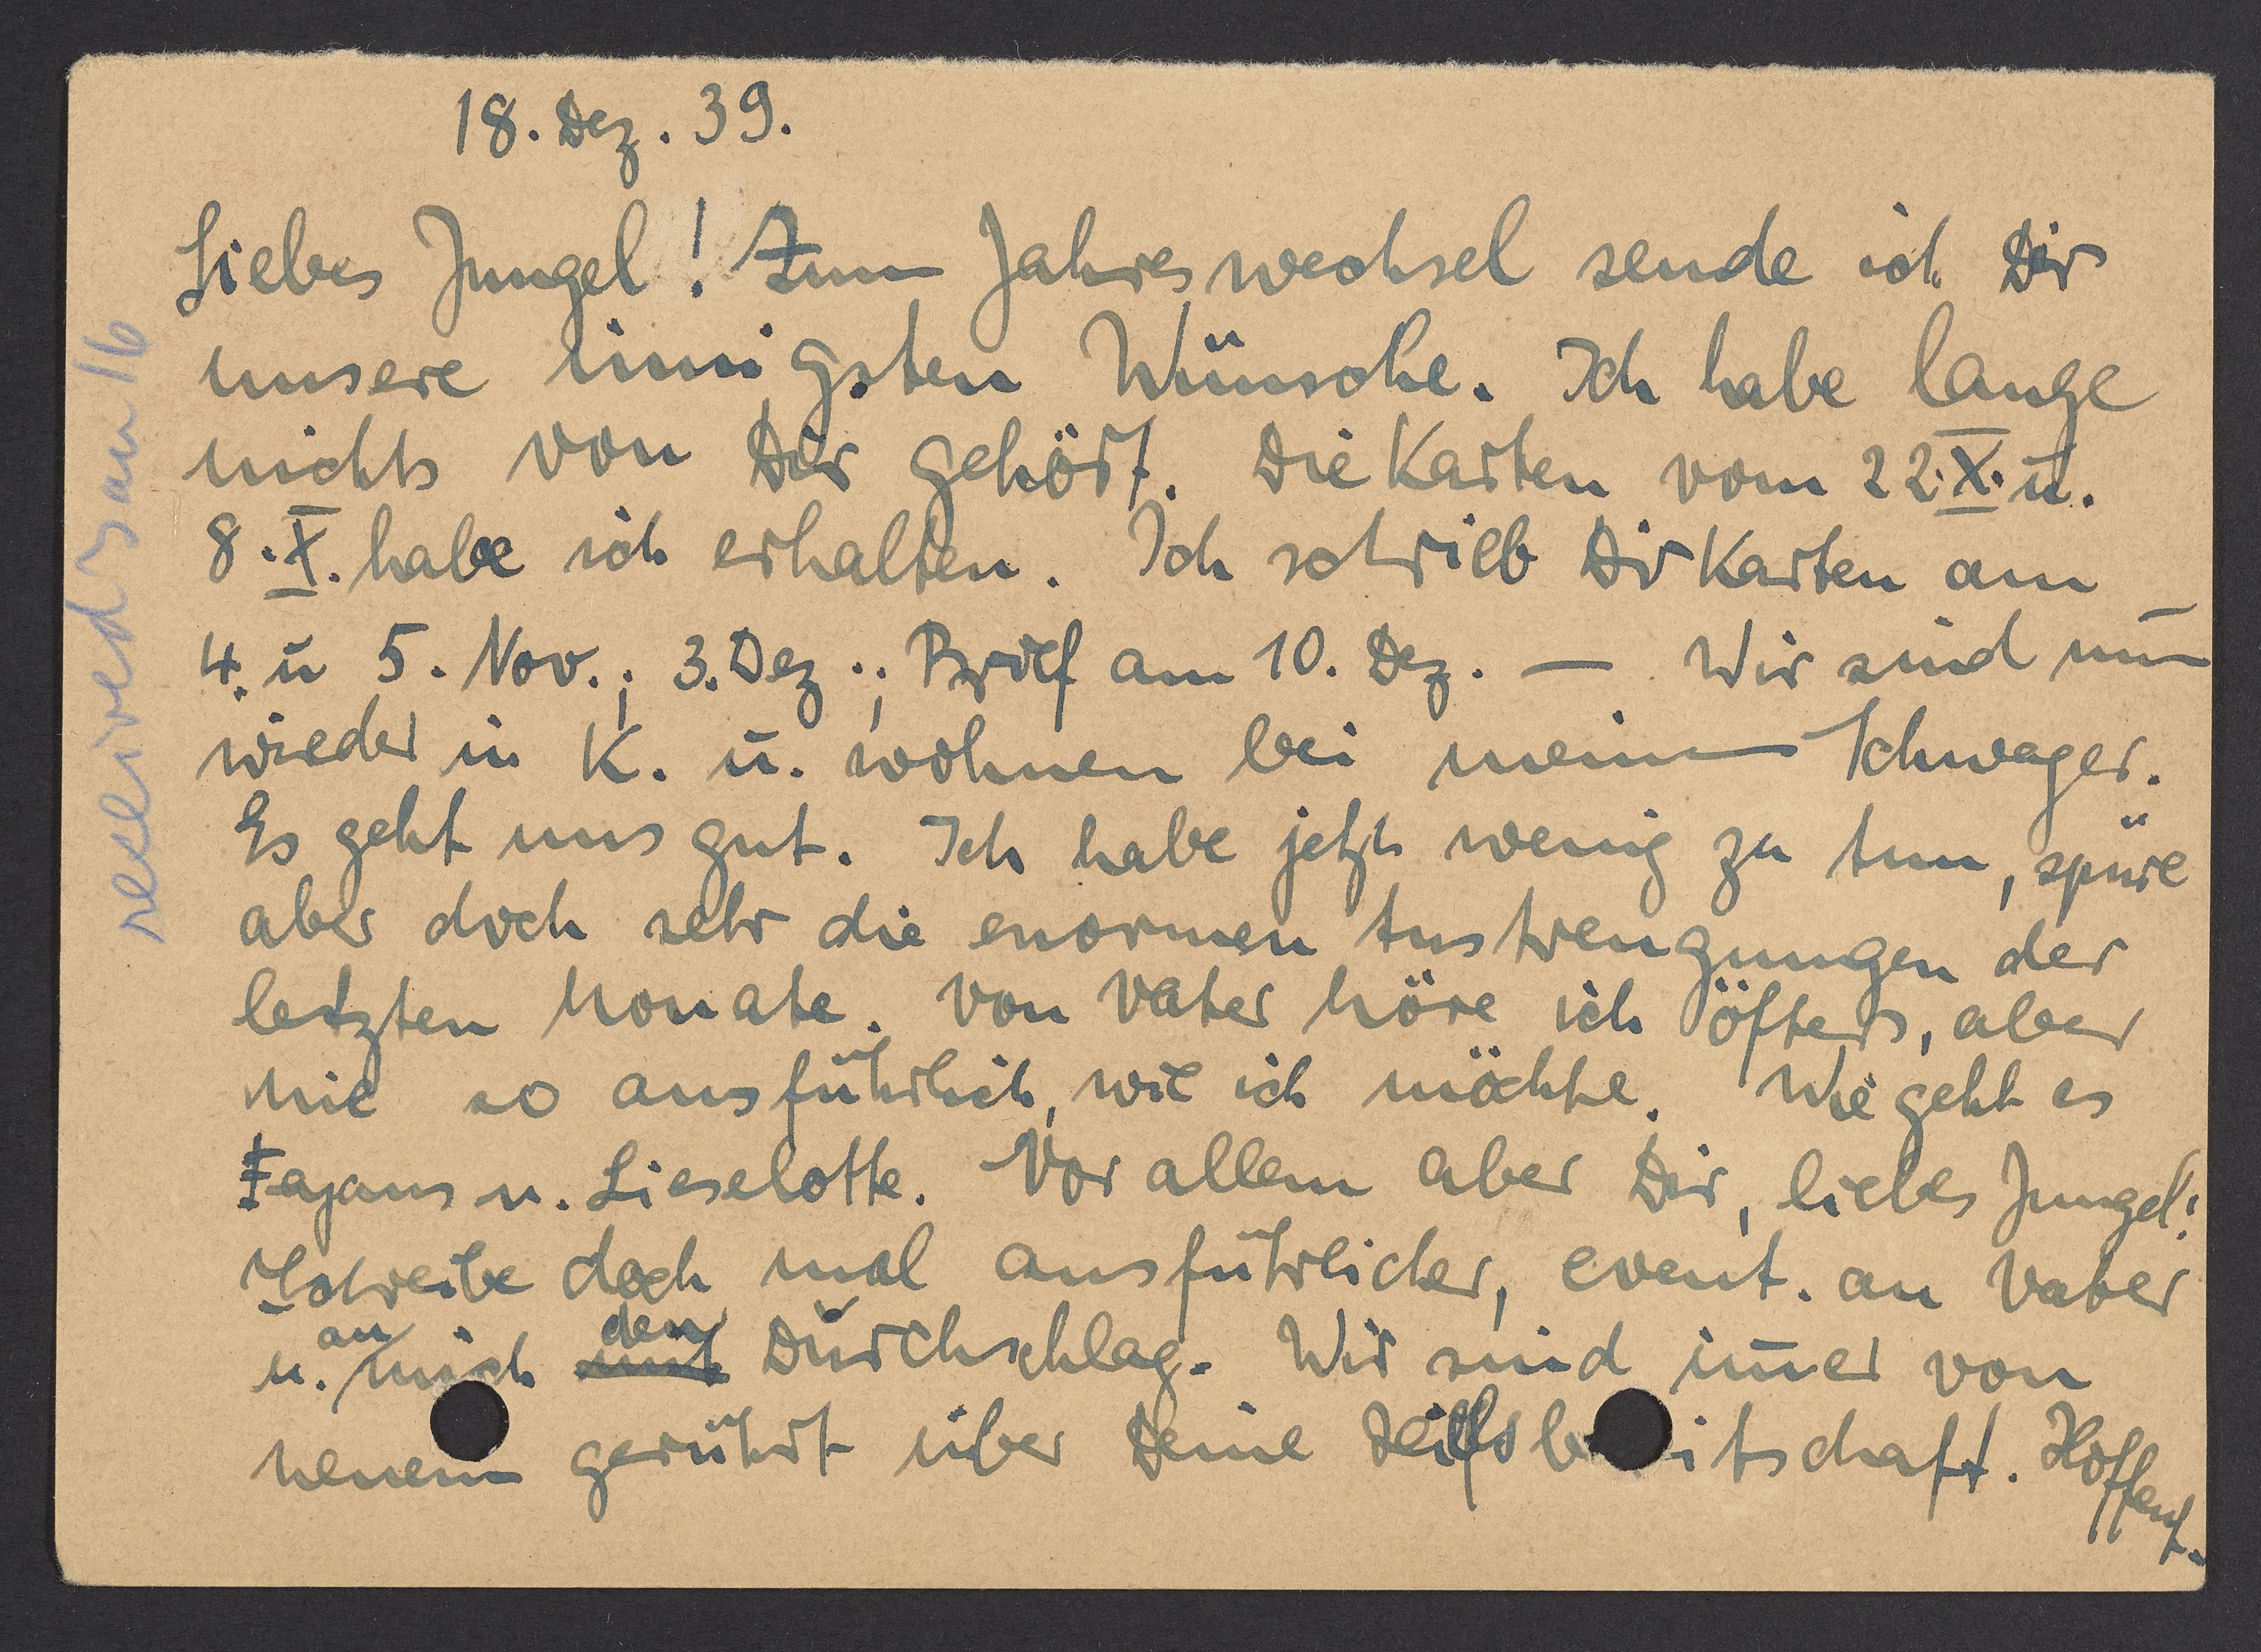 18. Dez. 39.
Liebes Jungel! Zum Jahreswechsel sende ich Dir
unsere innigsten Wünsche. Ich habe lange
nichts von Dir gehört. Die Karten vom 22. X. u.
8. X. habe ich erhalten. Ich schrieb Dir Karten am
4. u 5. Nov.; 3. Dez.; Brief am 10. Dez. — Wir sind nun
wieder in K. u. wohnen bei meinem Schwager.
Es geht uns gut. Ich habe jetzt wenig zu tun, spüre
aber doch sehr die enormen Anstrengungen der
letzten Monate. Von Vater höre ich öfters, aber
nie so ausführlich, wie ich möchte. Wie geht es
Fajans u. Lieselotte. Vor allem aber Dir, liebes Jungel!
Schreibe doch mal ausführlicher, event. an Vater
u. an mich den Durchschlag. Wir sind im̄er von
neuem gerührt über Deine Hilfsbereitschaft. Hoffent.
received Jan 16